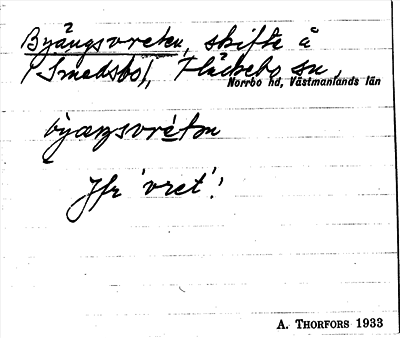 Byängsvreten, skifte å
(Smedsbo), Fläckebo sn,
Norrbo hd, Västmanlands län
byæŋsvréton
Jfr 'vret'!
A. THORFORS 1933